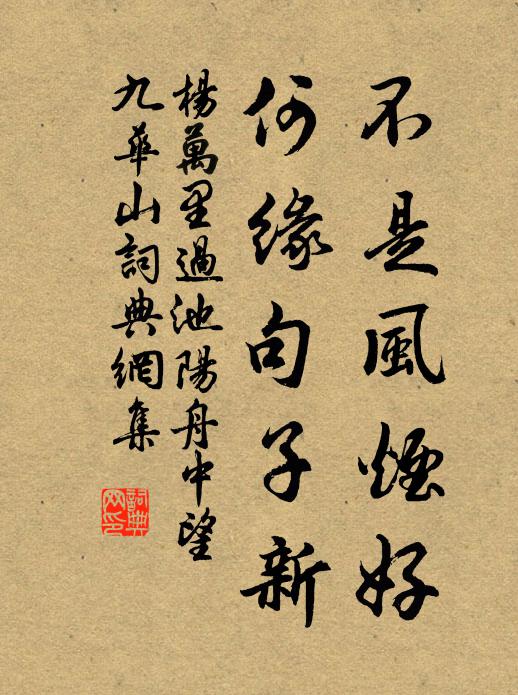 不是風煙好
何緣句子新
楊萬里過池陽舟中望
九華山詞典網集
詞典網印